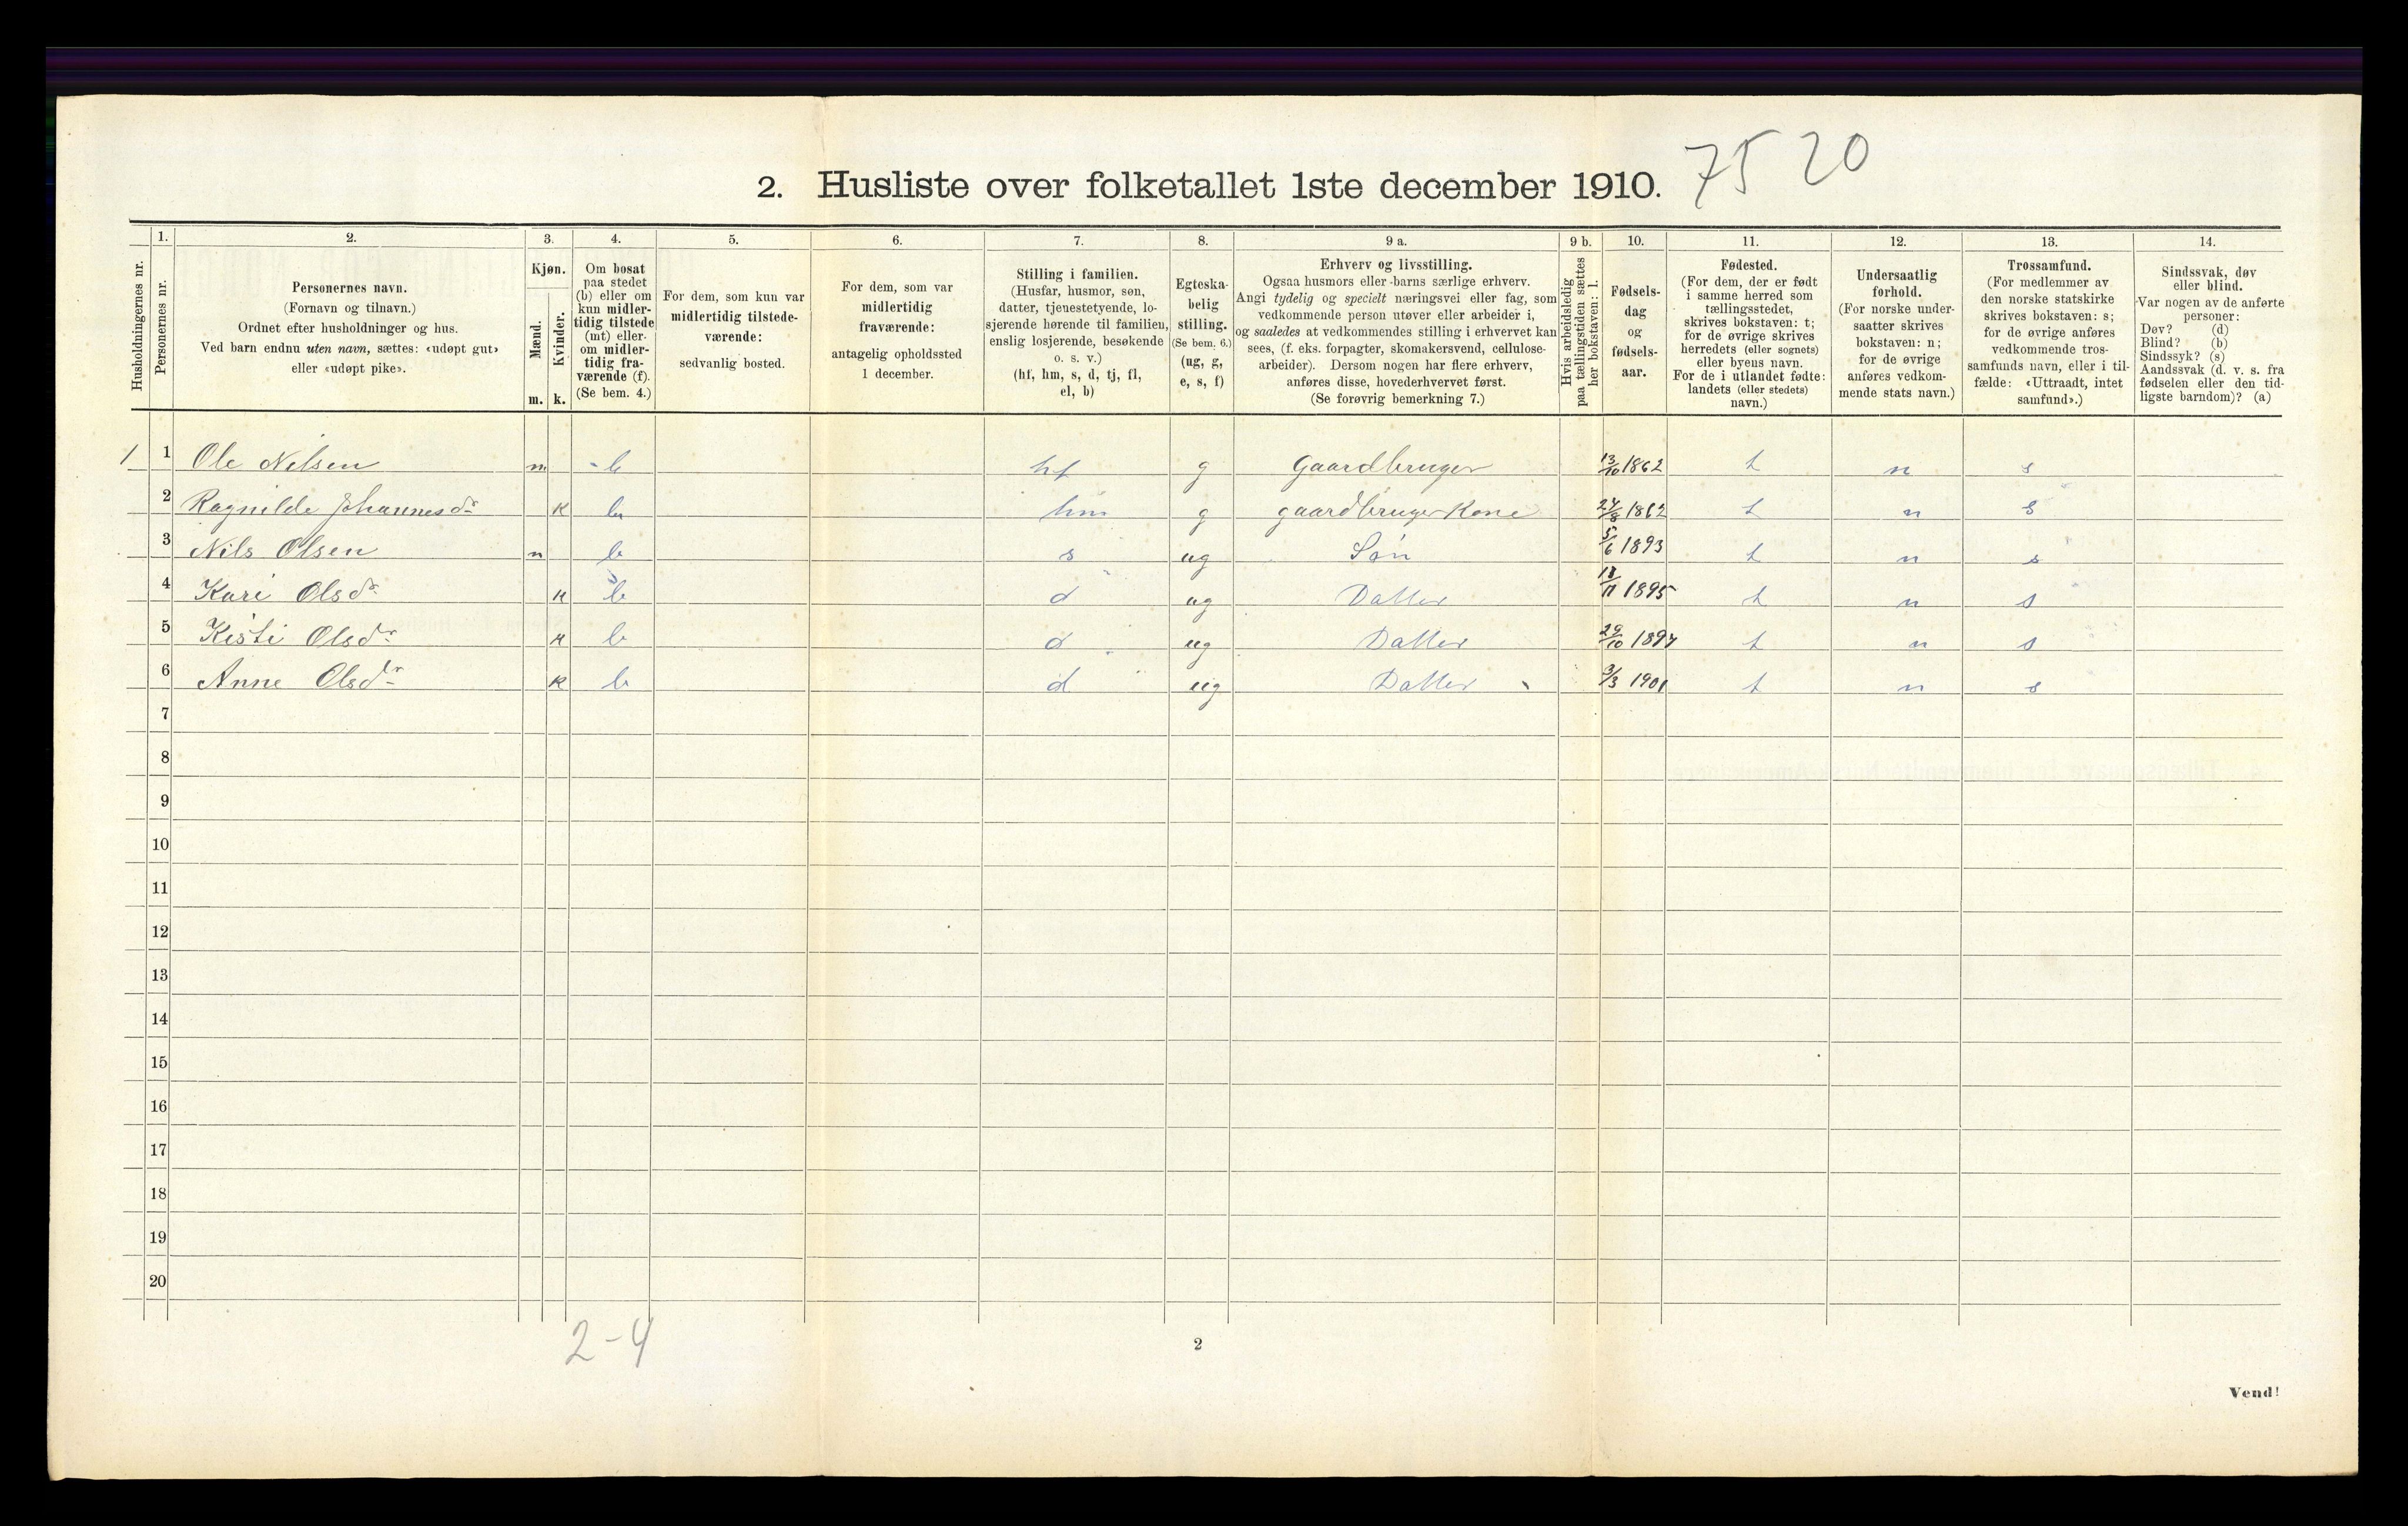 2. Husliste over folketallet 1ste december 1910. 75 20
1. 2. 3. 4. 5. 6. 7. 8. 9 a. 9 b. 10. 11. 12. 13. 14.
Husholdningernes nr.
Personernes nr.
Personernes navn.
(Fornavn og tilnavn.)
Ordnet efter husholdninger og hus.
Ved barn endnu uten navn, sættes: «udøpt gut»
eller «udøpt pike».
Kjøn.
Mænd.
Kvinder.
m. k.
Om bosat
paa stedet
(b) eller om
kun midler-
tidig tilstede
(mt) eller
om midler-
tidig fra-
værende (f).
(Se bem. 4.)
For dem, som kun var
midlertidig tilstede-
værende:
sedvanlig bosted.
For dem, som var
midlertidig
fraværende:
antagelig opholdssted
1 december.
Stilling i familien.
(Husfar, husmor, søn,
datter, tjenestetyende, lo-
sjerende hørende til familien,
enslig losjerende, besøkende
o. s. v.)
(hf, hm, s, d, tj, fl,
el, b)
Egteska-
belig
stilling.
(Se bem. 6.)
(ug, g,
e, s, f)
Erhverv og livsstilling.
Ogsaa husmors eller barns særlige erhverv.
Angi tydelig og specielt næringsvei eller fag, som
vedkommende person utøver eller arbeider i,
og saaledes at vedkommendes stilling i erhvervet kan
sees, (f. eks. forpagter, skomakersvend, cellulose-
arbeider). Dersom nogen har flere erhverv,
anføres disse, hovederhvervet først.
(Se forøvrig bemerkning 7.)
Hvis arbeidsledig
paa tællingstiden sættes
her bokstaven: l.
Fødsels-
dag
og
fødsels-
aar.
Fødested.
(For dem, der er født
i samme herred som
tællingsstedet,
skrives bokstaven: t;
for de øvrige skrives
herredets (eller sognets)
eller byens navn.
For de i utlandet fødte:
landets (eller stedets)
navn.)
Undersaatlig
forhold.
(For norske under-
saatter skrives
bokstaven: n;
for de øvrige
anføres vedkom-
mende stats navn.)
Trossamfund.
(For medlemmer av
den norske statskirke
skrives bokstaven: s;
for de øvrige anføres
vedkommende tros-
samfunds navn, eller i til-
fælde: «Uttraadt, intet
samfund».)
Sindssvak, døv
eller blind.
Var nogen av de anførte
personer:
Døv? (d)
Blind? (b)
Sindssyk? (s)
Aandssvak (d. v. s. fra
fødselen eller den tid-
ligste barndom)? (a)
1 1 Ole Nilsen m b hf g Gaardbruger 13/10 1862 t n s
2 Ragnilde Johannesdr k b hm g gaardbruger Kone 24/8 1862 t n s
3 Nils Olsen m b s ug Søn 5/6 1893 t n s
4 Kari Olsdr k b d ug Datter 18/11 1895 t n s
5 Kisti Olsdr k b d ug Datter 29/10 1897 t n s
6 Anne Olsdr k b d ug Datter 3/3 1901 t n s
7
8
9
10
11
12
13
14
15
16
17
18
19
20
2-4
2
Vend!